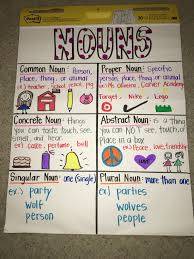 Post-it
NOUNS
Common Noun - Person,
place, thing, or animal
ex.) teacher, school, pencil, dog
Proper Noun - Specific
person, place, thing or animal
ex.) Ms. Oliver, Carter Academy
Target, Nike, Lego
Concrete Noun - things
you can taste, touch, see,
smell, or hear
ex.) cake, perfume, bell
Abstract Noun - a thing
you can NOT see, touch,
or place in a box
ex.) Peace, love, friendship
Singular Noun - one (single)
ex.) party
wolf
person
Plural Noun - more than one
ex.) parties
wolves
people